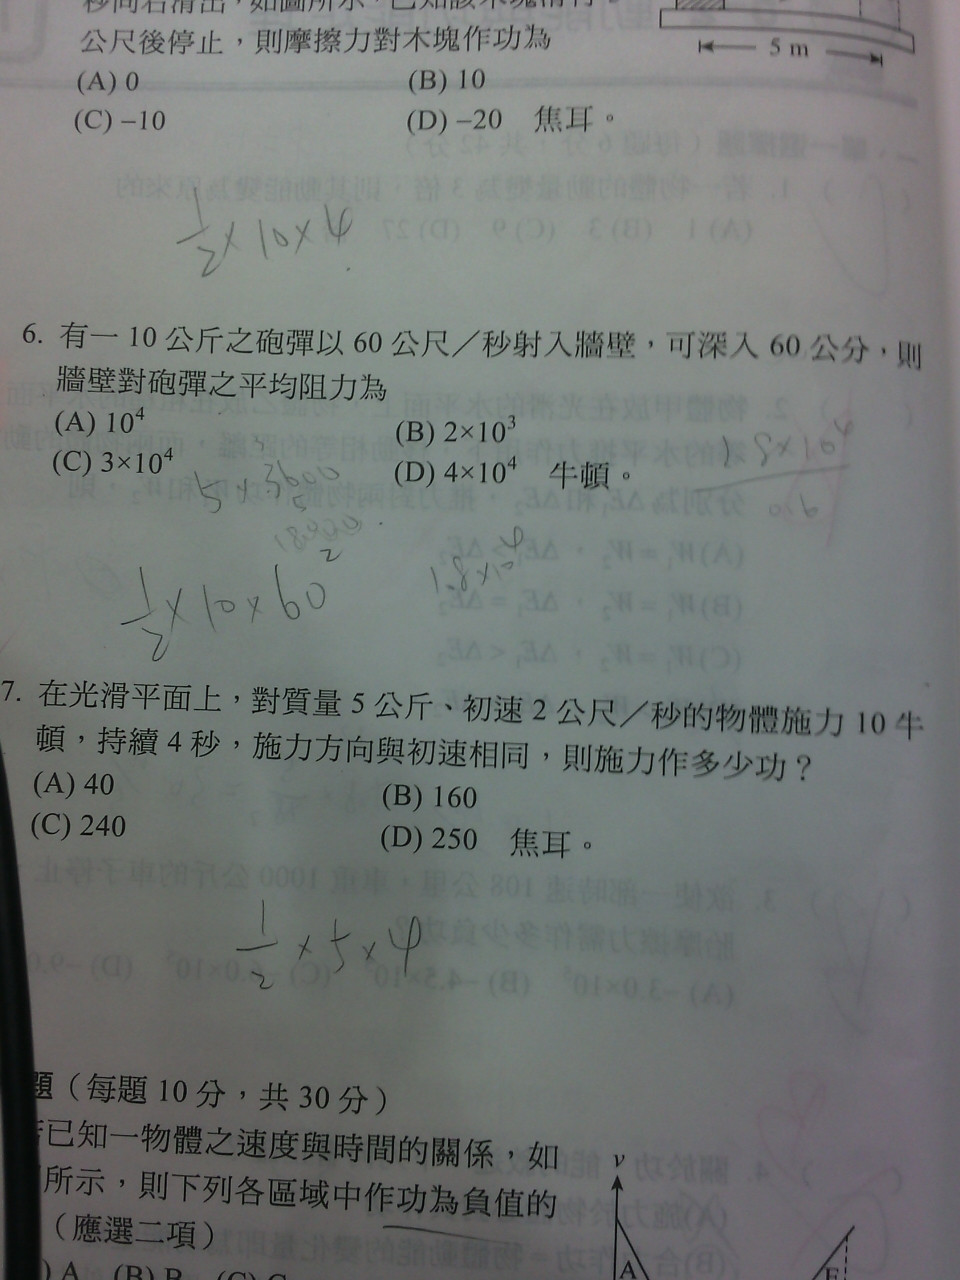 公尺後停止，則摩擦力對木塊作功為
5 m
(A) 0 (B) 10
(C) –10 (D) –20 焦耳。
1/2 × 10 × 4
6. 有一 10 公斤之砲彈以 60 公尺／秒射入牆壁，可深入 60 公分，則
牆壁對砲彈之平均阻力為
(A) 10⁴ (B) 2×10³
(C) 3×10⁴ (D) 4×10⁴ 牛頓。
5 × 3600
1.8×10⁴
1/2 × 10 × 60²
7. 在光滑平面上，對質量 5 公斤、初速 2 公尺／秒的物體施力 10 牛
頓，持續 4 秒，施力方向與初速相同，則施力作多少功？
(A) 40 (B) 160
(C) 240 (D) 250 焦耳。
1/2 × 5 × 4
題（每題 10 分，共 30 分）
已知一物體之速度與時間的關係，如
所示，則下列各區域中作功為負值的
（應選二項）
v
A
E
) A (B) B (C) C